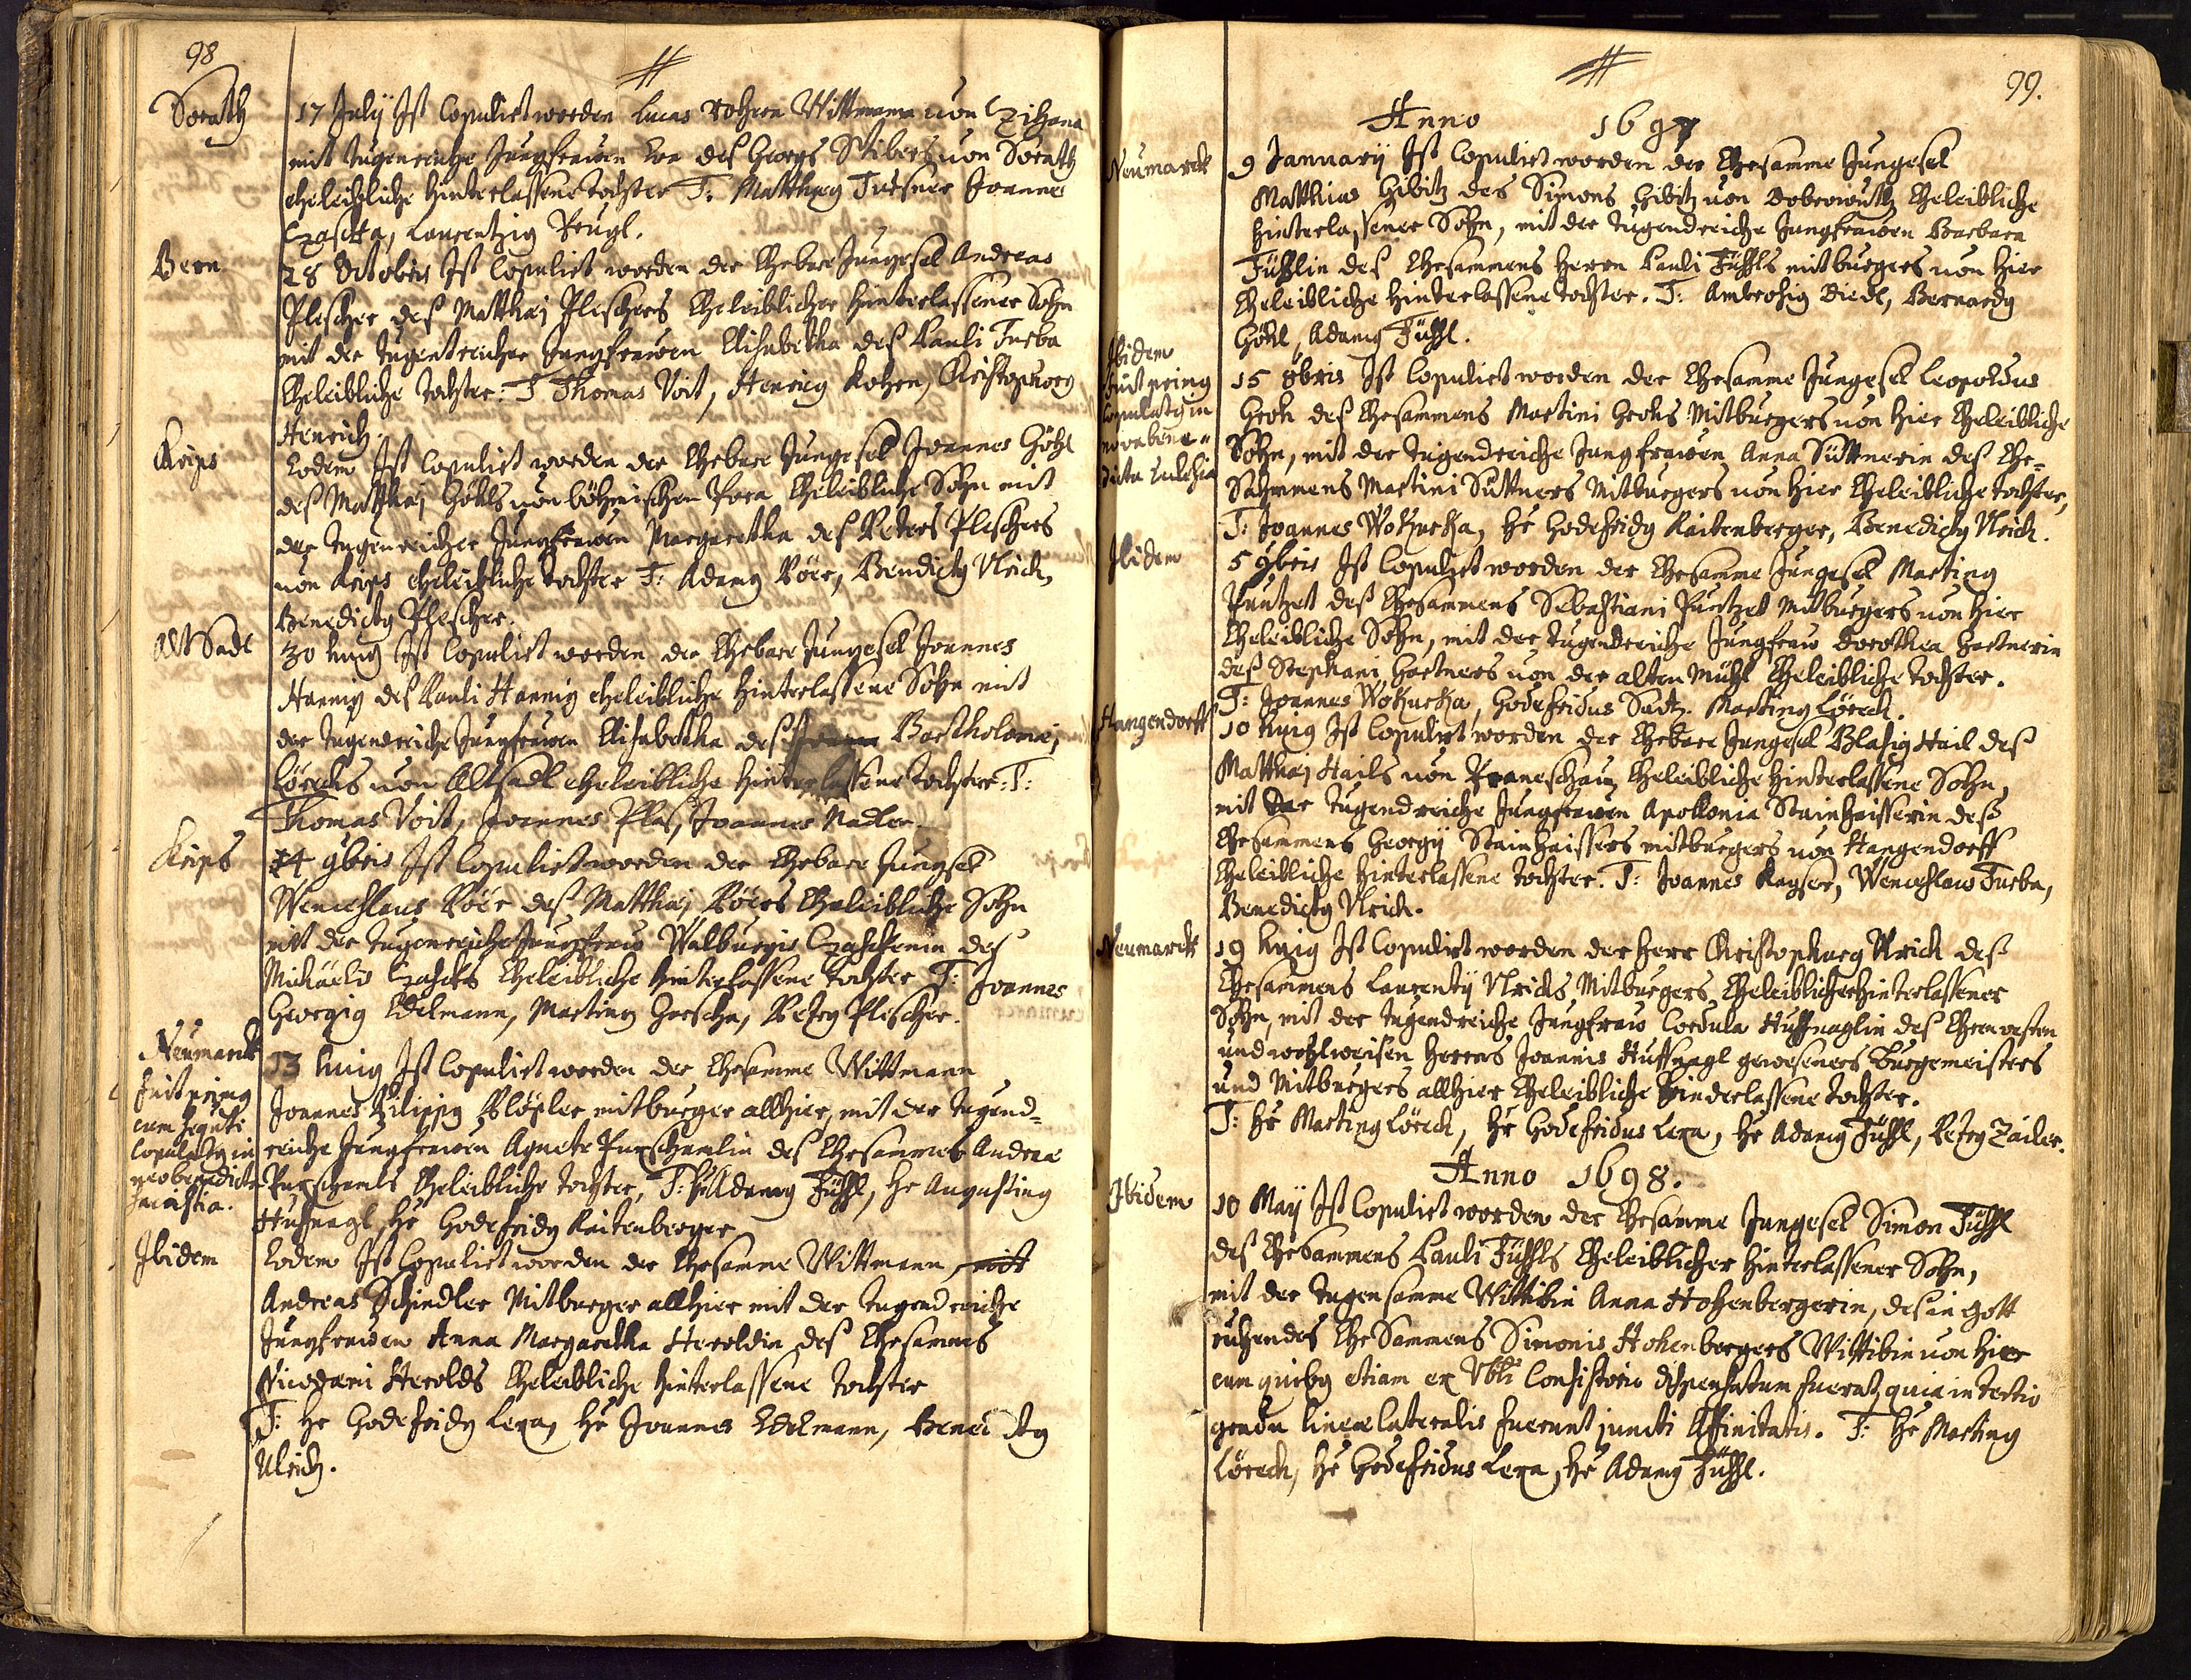 98
Sorath
17 Julÿ Ist Copulirt worden Lucas Rohrer Wittmann von Czihana
mit tugenreiche Jungfrawen Eva deß Georgs Stibers von Sorath
eheleibliche hinterlassene tochter T: Matthaeg Turßner Joannes
Czaschka, Laurentzig Prugl.
Bern
28 Octobris Ist Copulirt worden der Ehebare Jungesel Andreas
Plescher deß Matthaei Pleschers Eheleiblicher hinterlassener Sohn
mit der tugentreicher Jungfrawen Elisabetha deß Pauli Turba
Eheleibliche tochter: T Thomas Voit, Henrig Kohrn, Christophorg
Henrich.
Krips
Eodem Ist Copulirt worden der Ehebare Jungesel Joannes Göhl
deß Matthaei Göhls von böhmischen Pora Eheleibliche Sohn mit
der tugenreicher Jungfrawen Margaretha deß Peters Pleschers
von Krips eheleibliche tochter T: Adamg Röer, Bendictg Ulrich,
Benedictg Plescher.
Alt Sadl
30 huig Ist Copulirt worden der Ehebare Jungesel Joannes
Hannig deß Pauli Hannig eheleibliche hinterlassene Sohn mit
der tugendreiche Jungfrawen Elisabetha deß Bartholomei
Lörecks von Altsadl eheleibliche hinterlassene tochter: T:
Thomas Voit, Joannes Plaß, Joannes Nadler
Krips
14 9bris Ist Copulirt worden der Ehebare Jungsel
Wenceslaus Röer deß Matthaei Röers Eheleibliche Sohn
mit der tugenreiche Jungfraw Walburgis Czaschkenin deß
Michaelis Czaschks Eheleibliche hinterlassene tochter T: Joannes
Georgig Edelmann, Marting Horscha, Peterg Plescher.
Neumarck
fuit primg
cum sequti
Copulatg in
neobenedicta
13 huig Ist Copulirt worden der Ehesamme Wittmann
Joannes Philippg Plößler mitburger allhier, mit der tugend-
reiche Jungfrawen Agnete Purschamlin deß Ehesammes Andreae
Purschamls Eheleibliche tochter, T: Hr Adamg Füßl, Hr Augusting
Hufnagl, Hr Godefridg Raitenberger
Ibidem
Eodem Ist Copulirt worden der Ehesamme Wittmann, mit
Andreas Schindler Mitburger allhier mit der tugendreiche
Jungfrawen Anna Margaretha Heroldin deß Ehesammes
Nicodemi Herolds Eheleibliche hinterlassene tochter
T: Hr Godefridg Lexa, Hr Joannes Edlmann, Benedictg
Ulrich.
99.
Anno 1697
Neumarck
9 Januarÿ Ist Copulirt worden der Ehesamme Jungesel
Matthias Gibitz des Simons Gibitz von Dobrowuth Eheleibliche
hinterlassener Sohn, mit der tugendreiche Jungfrawen Barbara
Füßlin deß Ehesammens Herrn Pauli Füßls mitburgers von hier
Eheleibliche hinterlassene tochter. T: Ambrosig Diedl, Bernardg
Göhl, Adamg Füßl.
Ibidem
fuit primg
Copulatg in
novabene-
dicta Ecclesia
15 8bris Ist Copulirt worden der Ehesamme Jungesel Leopoldus
Groh deß Ehesammens Martini Grohs Mitburgers von hier Eheleibliche
Sohn, mit der tugendreiche Jungfrawen Anna Süttnerin deß Ehe-
Sahmmens Martini Süttners Mitburgers von hier Eheleibliche tochter,
T: Joannes Wokurka, Hr Godefridg Raitenberger, Benedictg Ulrich.
Ibidem
5 9bris Ist Copulirt worden der Ehesamme Jungesel Marting
Puntzet deß Ehesammens Sebastiani Puntzet Mitburgers von hier
Eheleibliche Sohn, mit der tugendreiche Jungfraw Dorothea Hartnerin
deß Stephani Hartners von der alten mühl Eheleibliche tochter.
T: Joannes Wokurka, Godefridus Sadtz. Marting Löreck.
Hangendorff
10 huig Ist Copulirt worden der Ehebare Jungesel Blasig Hail deß
Matthaei Hails von Praneschau Eheleibliche hinterlassene Sohn,
mit der tugendreiche Jungfrawen Apollonia Stainhaisserin deß
Ehesammens Georgÿ Stainhaissers mitburgers von Hangendorff
Eheleibliche hinterlassene tochter. T: Joannes Kayser, Wenceslaus Turba,
Benedictg Ulrich.
Neumarck
19 huig Ist Copulirt worden der Herr Christophorg Ulrich deß
Ehesammens Laurentÿ Ulrichs Mitburgers Eheleiblicher hinterlassener
Sohn, mit der tugendreiche Jungfraw Cordula Huffnaglin deß Ehrnvesten
und wohlweisen Herrns Joannis Huffnagl geweseners Burgemeisters
und Mitburgers allhier Eheleibliche hinderlassene tochter.
T: Hr Marting Löreck, Hr Godefridus Lexa, Hr Adamg Füßl, Peterg Zailer.
Anno 1698.
Ibidem
10 Maÿ Ist Copulirt worden der Ehesamme Jungesel Simon Füßl
deß Ehesammens Pauli Füßls Eheleiblicher hinterlassener Sohn,
mit der tugensamme Wittibin Anna Hohenbergerin, deß in Gott
ruhendes EheSammens Simonis Hohenbergers Wittibin von hier
cum quibg etiam ex Vbli Consistorio dispensatum fuerat, quia in tertio
gradu lineae lateralis fuerunt juncti Affinitatis. T: Hr Marting
Löreck, Hr Godefridus Lexa, Hr Adamg Füßl.